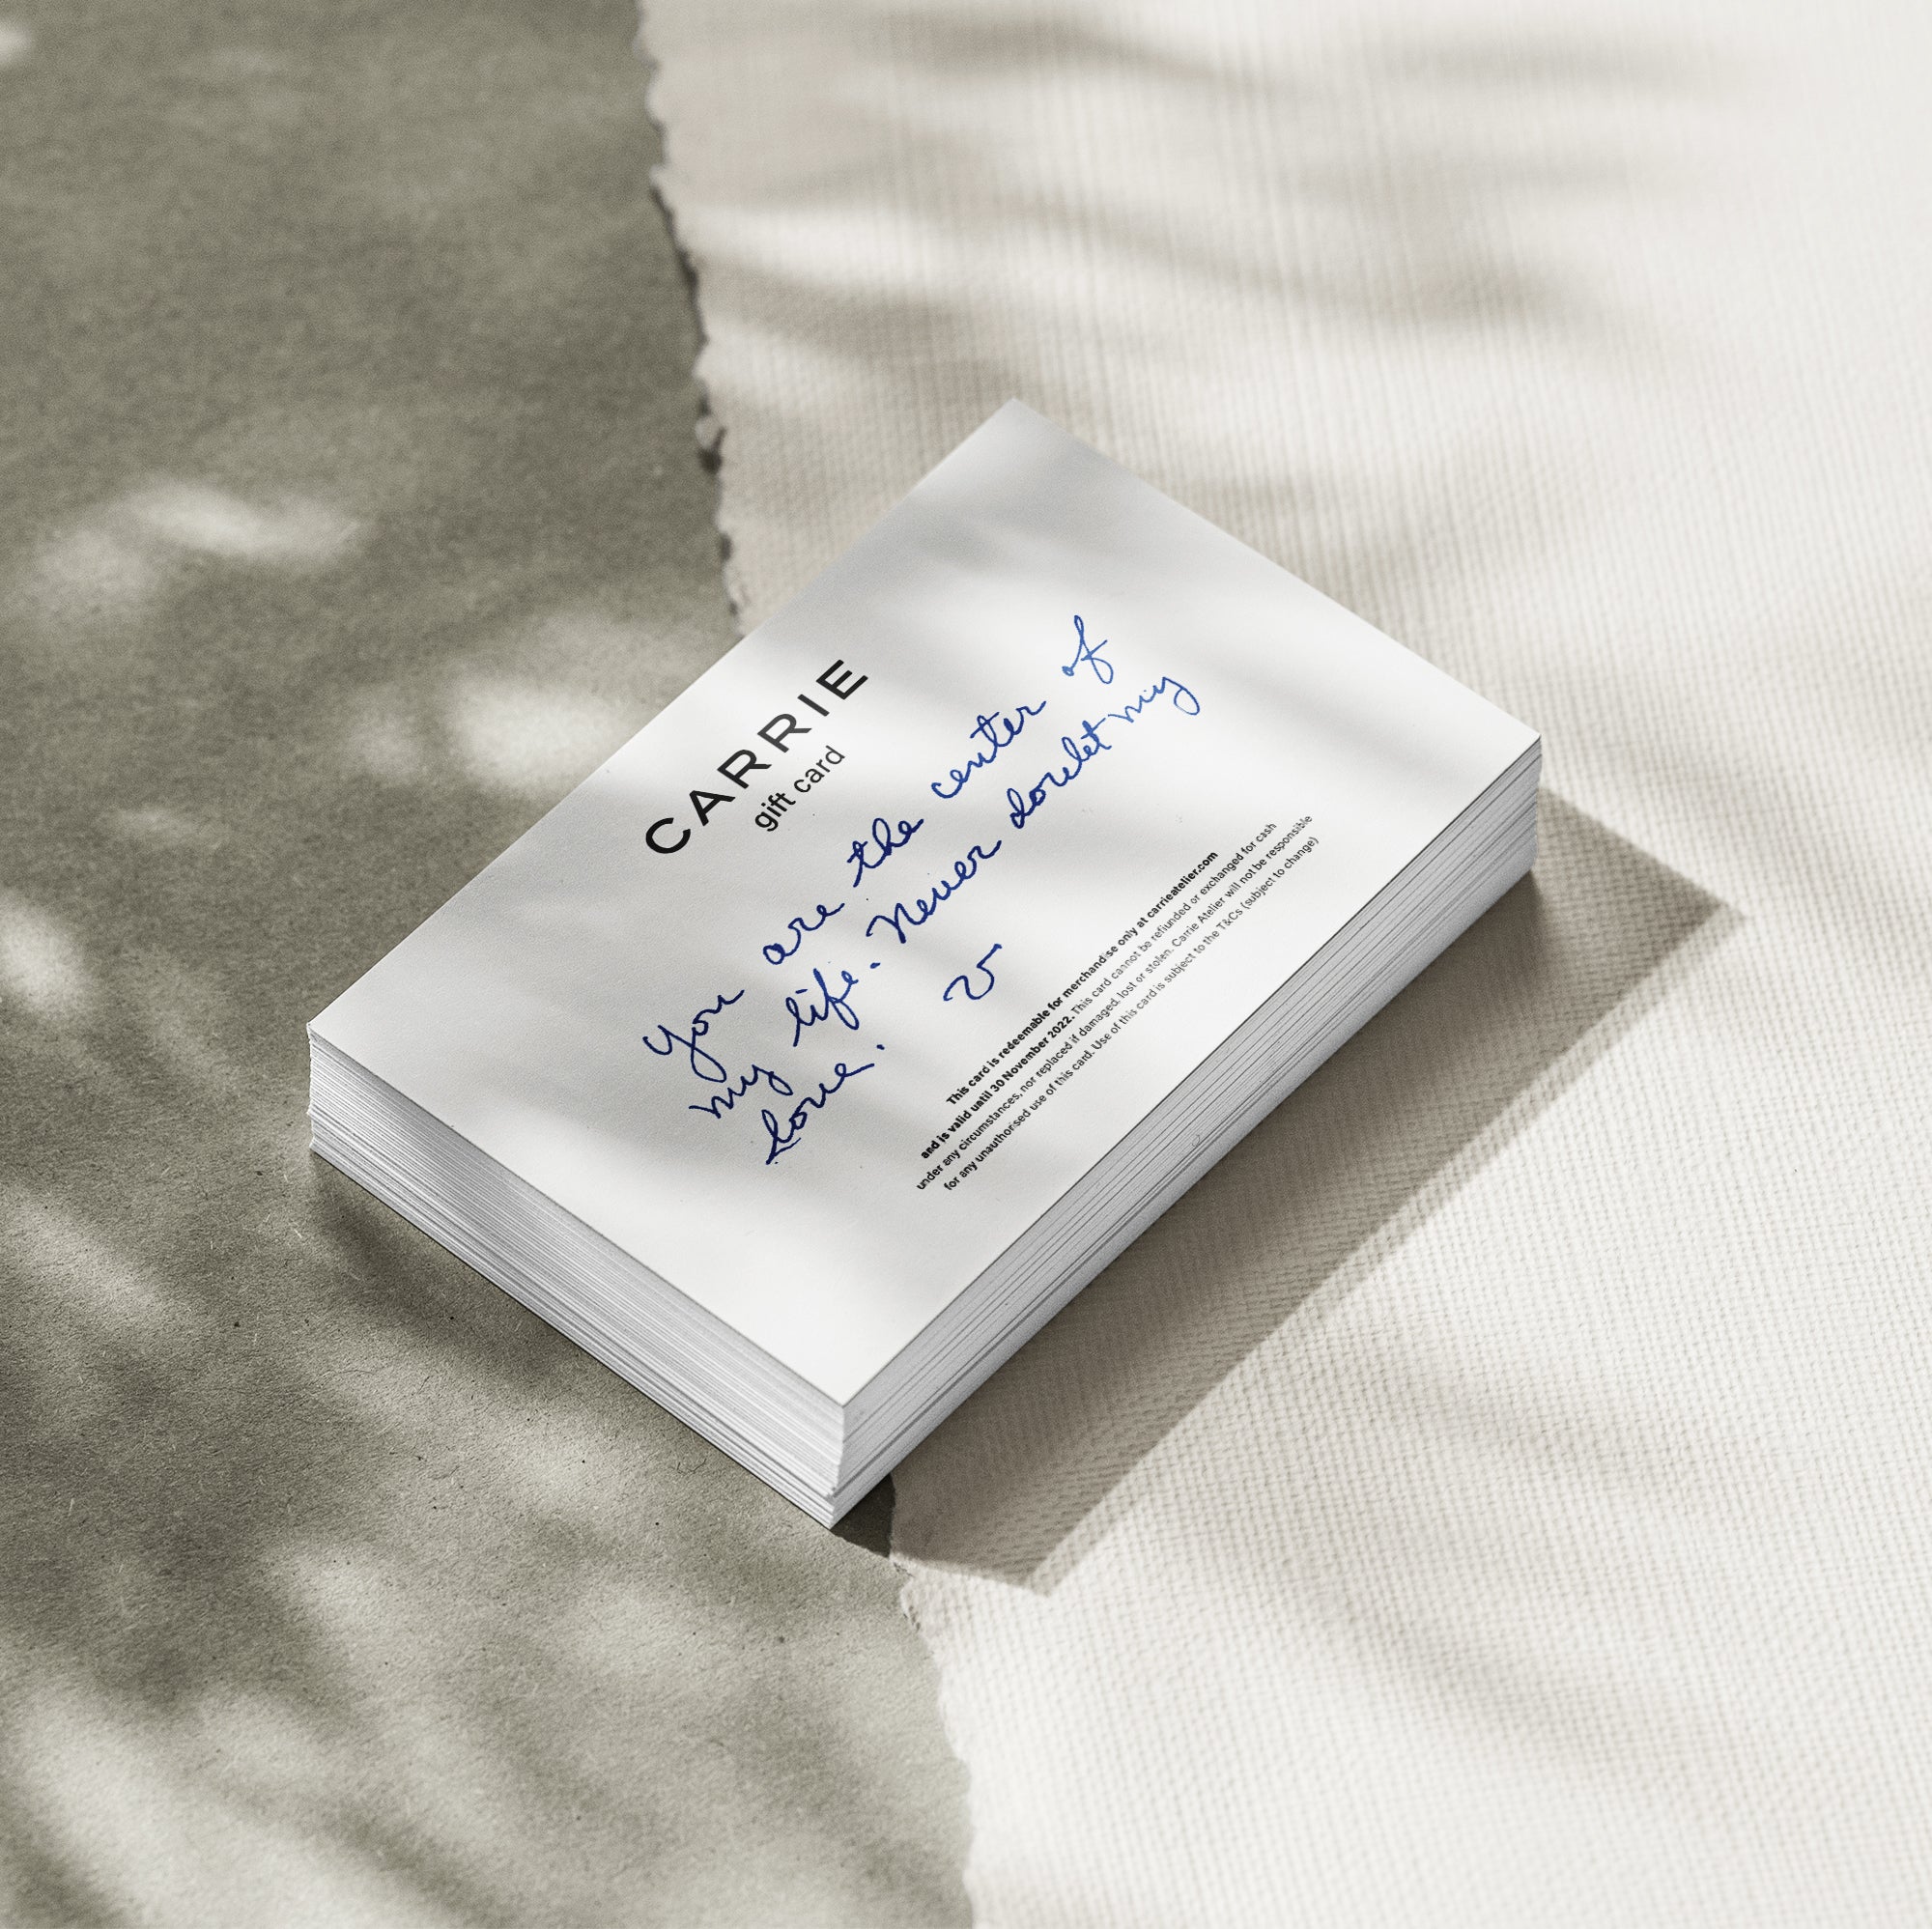 CARRIE
gift card
You are the center of
my life. Never doubt my
love.
v
This card is redeemable for merchandise only at carrieatelier.com
and is valid until 30 November 2022. This card cannot be refiunded or exchanged for cash
under any circumstances, nor replaced if damaged, lost or stolen. Carrie Atelier will not be responsible
for any unauthorised use of this card. Use of this card is subject to the T&Cs (subject to change)